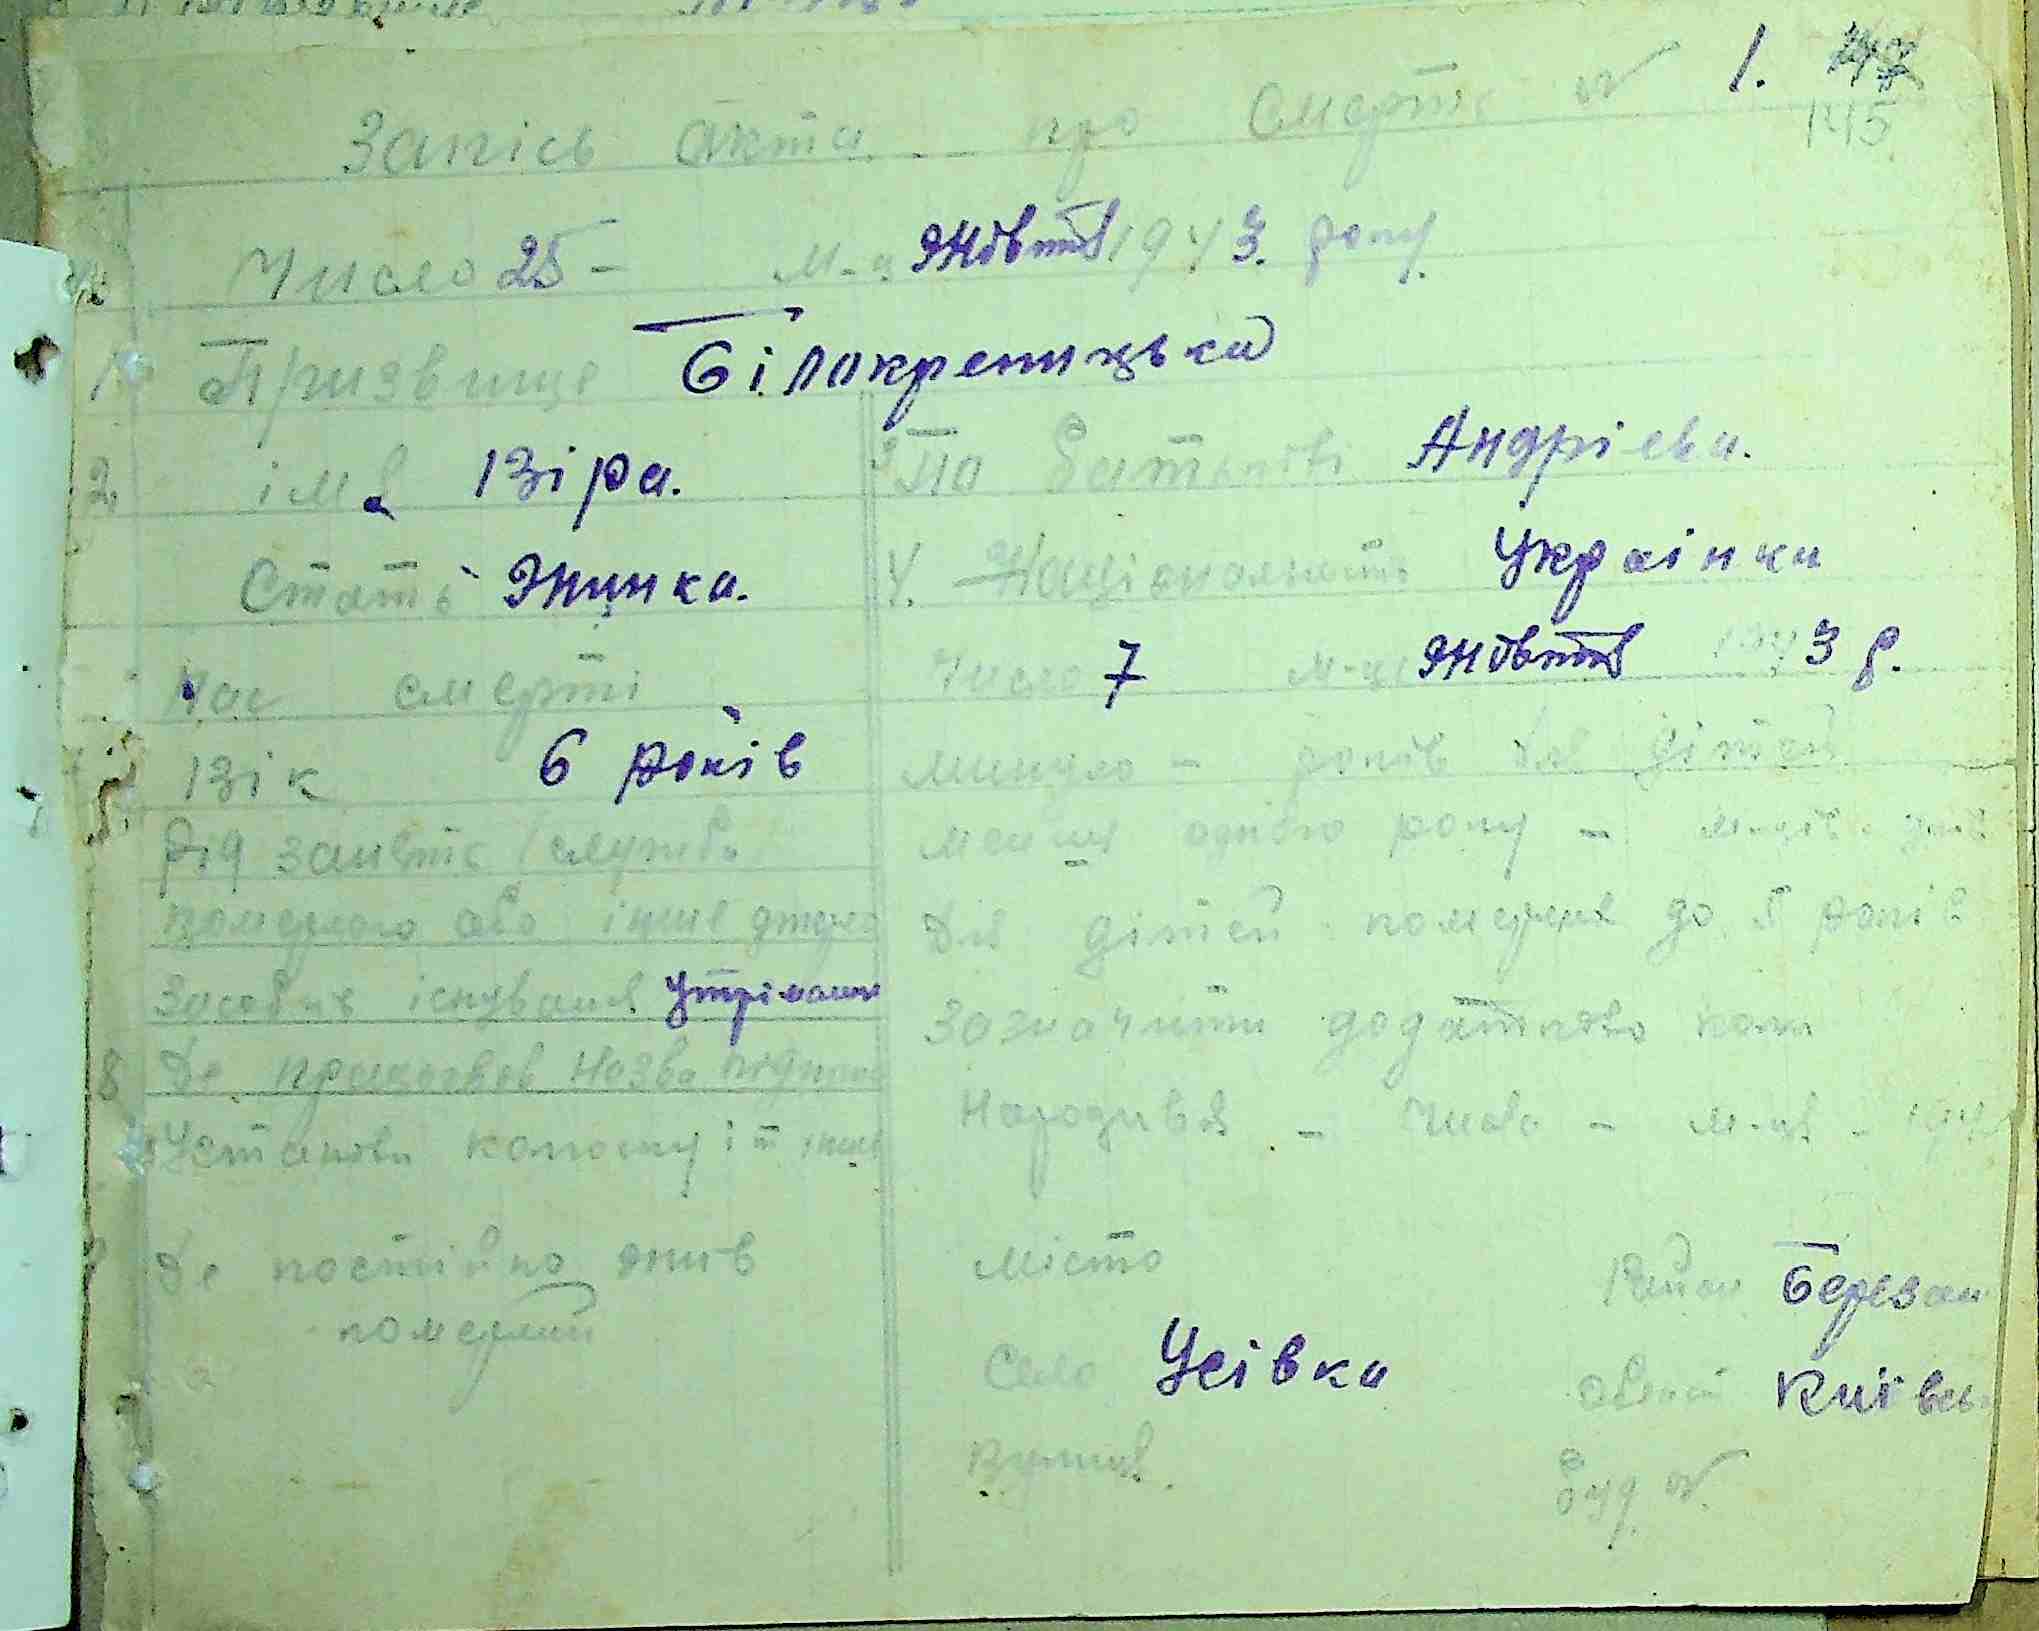 1.
145
Запісь акта про смерть №
Число 25 - м-ц Жовтня 1943. року.
1 Прізвище Білокреницька
2 імя Віра. 3 По батькові Андріева.
Стать Жінка. 4. Національність Українка
Час смерті Число 7 м-ця Жовтня 1943 р.
Вік 6 років минуло - років для дітей
Рід занять (служби) менше одного року - м-ців
померлого або інше джерело Для дітей померши до 5 років
Засобів існування Утриманя Зазначити додатково коли
8 Де працював Назва підпри Народився - Число - м-ця - 194
Установи колгоспу і т інше
Де постійно жив місто Район Березан
померлий
Село Усівка област Київсь
вулиця буд. №